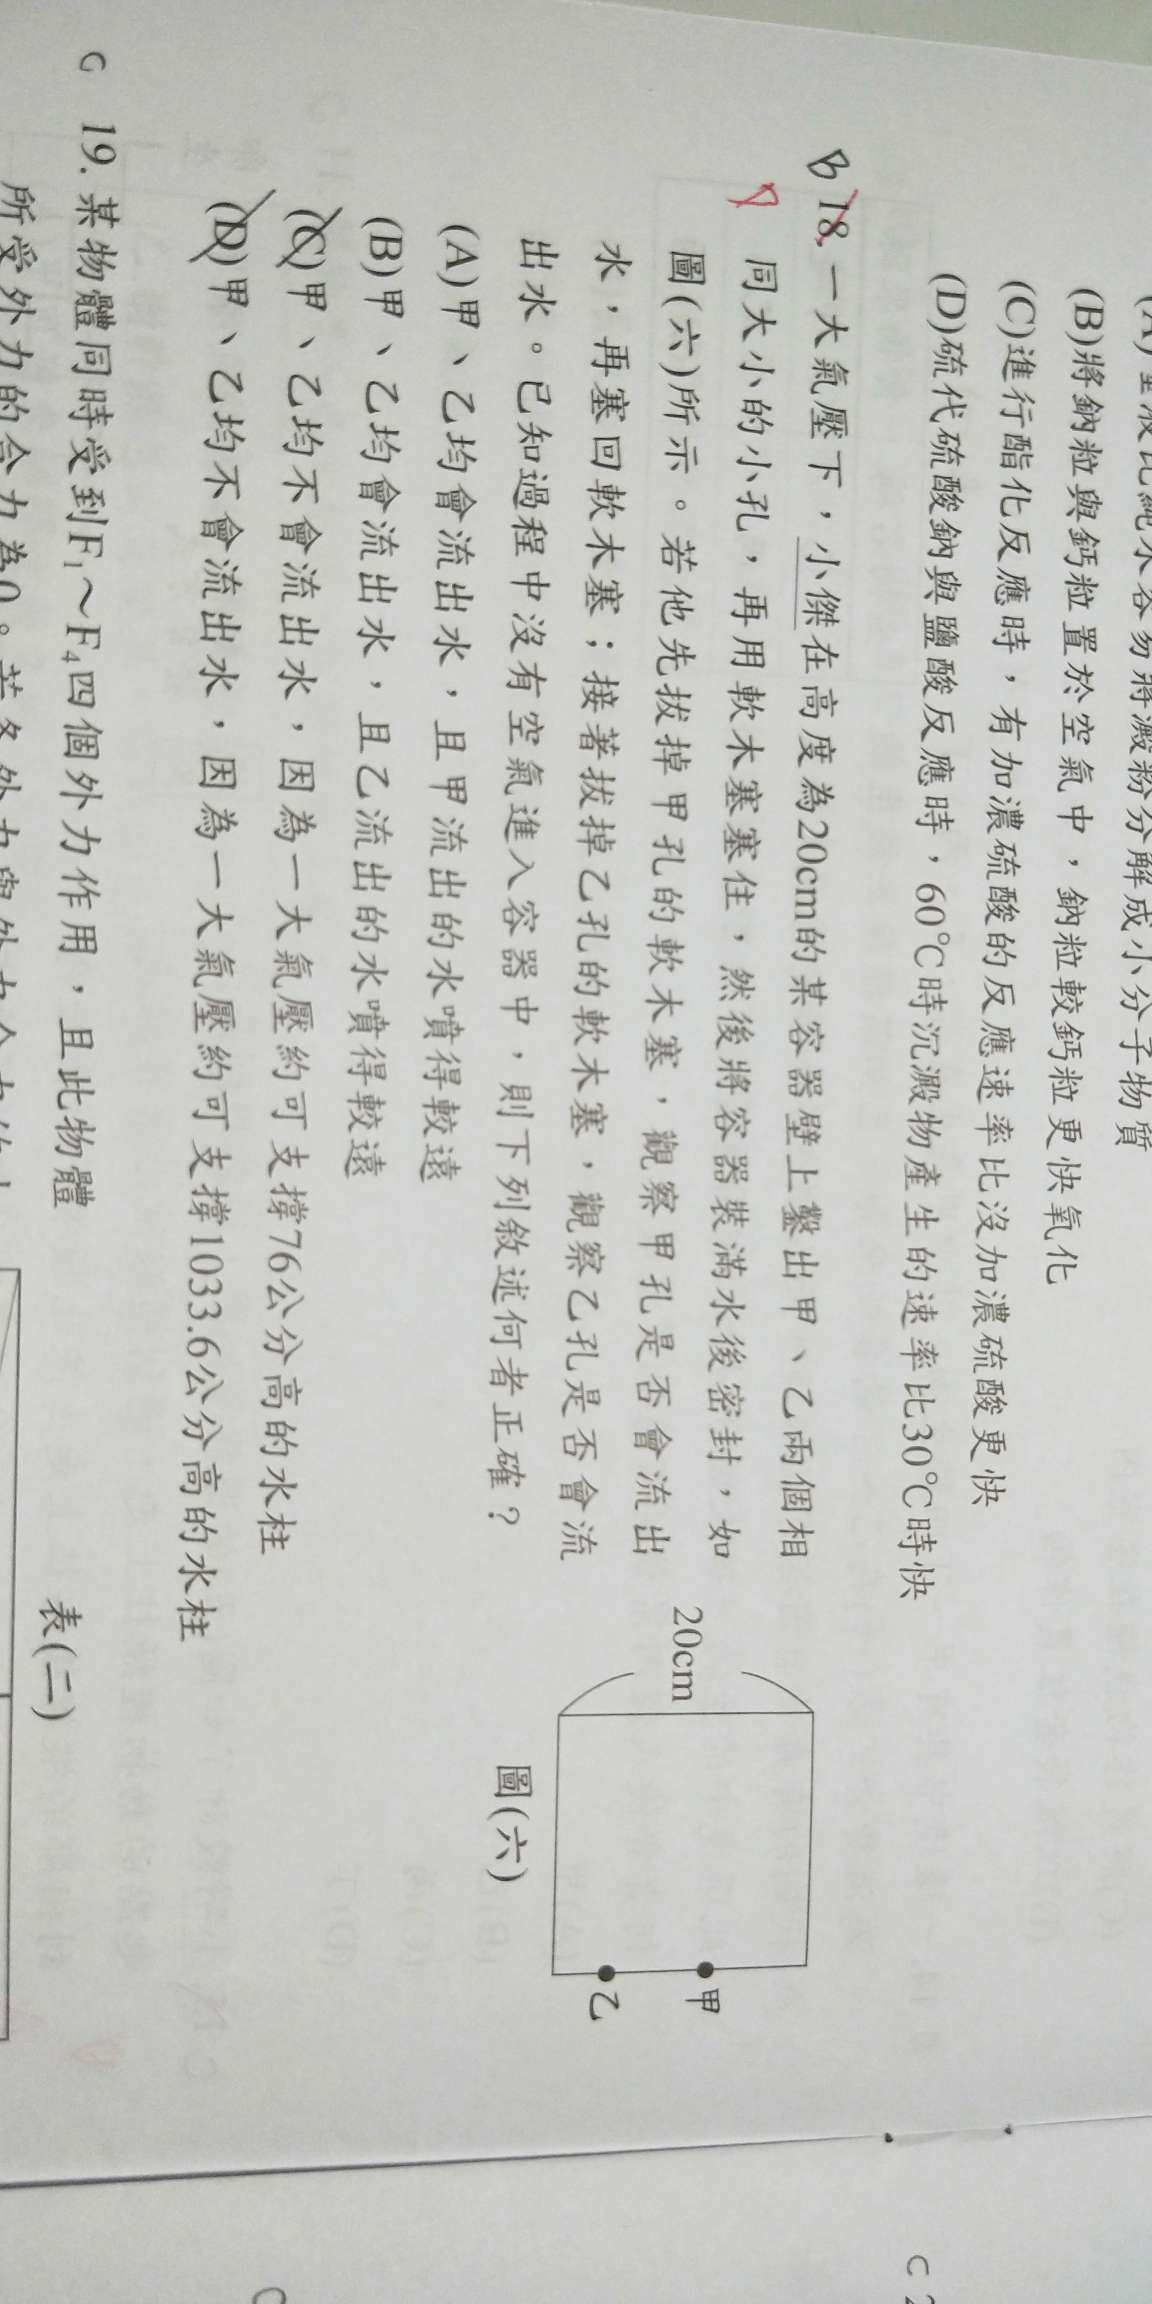 (B)將鈉粒與鈣粒置於空氣中，鈉粒較鈣粒更快氧化
(C)進行酯化反應時，有加濃硫酸的反應速率比沒加濃硫酸更快
(D)硫代硫酸鈉與鹽酸反應時，60℃時沉澱物產生的速率比30℃時快
B 18.一大氣壓下，小傑在高度為20cm的某容器壁上鑿出甲、乙兩個相
同大小的小孔，再用軟木塞塞住，然後將容器裝滿水後密封，如
圖(六)所示。若他先拔掉甲孔的軟木塞，觀察甲孔是否會流出
水，再塞回軟木塞；接著拔掉乙孔的軟木塞，觀察乙孔是否會流
出水。已知過程中沒有空氣進入容器中，則下列敘述何者正確？
(A)甲、乙均會流出水，且甲流出的水噴得較遠
(B)甲、乙均會流出水，且乙流出的水噴得較遠
(C)甲、乙均不會流出水，因為一大氣壓約可支撐76公分高的水柱
(D)甲、乙均不會流出水，因為一大氣壓約可支撐1033.6公分高的水柱
20cm
甲
乙
圖(六)
19.某物體同時受到F₁～F₄四個外力作用，且此物體
所受外力的合力為0。若各外力與外力合力的
表(二)